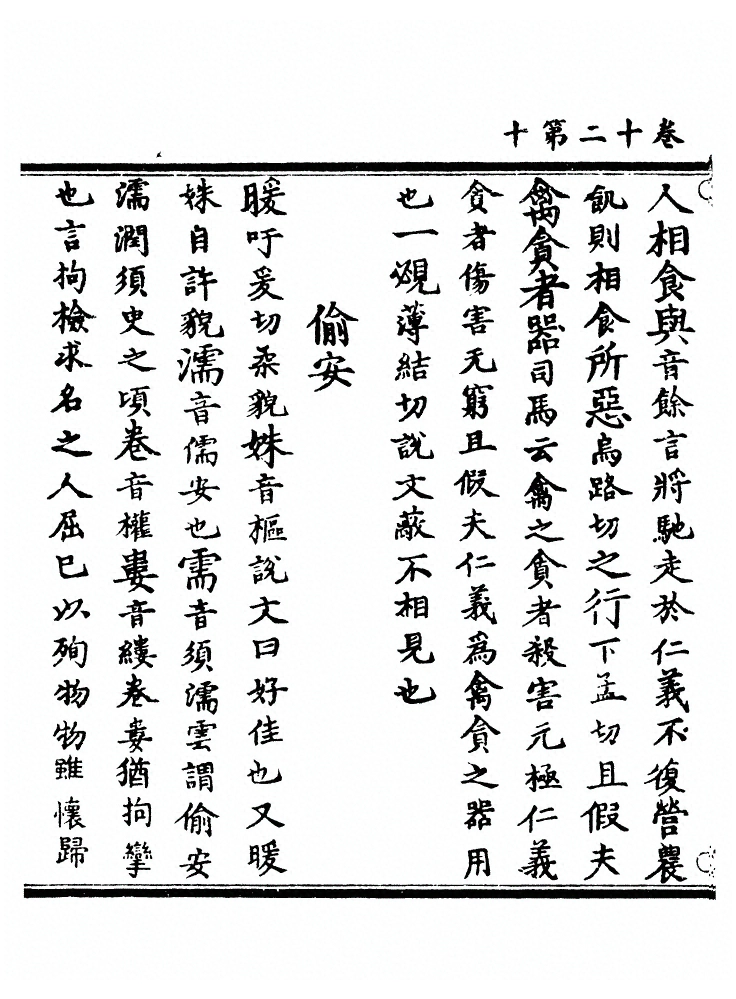 卷十二第十
人相食與音餘言將馳走於仁義不復營農
飢則相食所惡烏路切之行下孟切且假夫
禽貪者器司馬云禽之貪者殺害元極仁義
貪者傷害无窮且假夫仁義爲禽貪之器用
也一覕薄結切說文蔽不相見也
偷安
暖吁爰切柔貌姝音樞說文曰好佳也又暖
姝自許貌濡音儒安也需音須濡雲謂偷安
濡潤須史之頃卷音權婁音縷卷婁猶拘攣
也言拘檢求名之人屈巳以殉物物雖懷歸